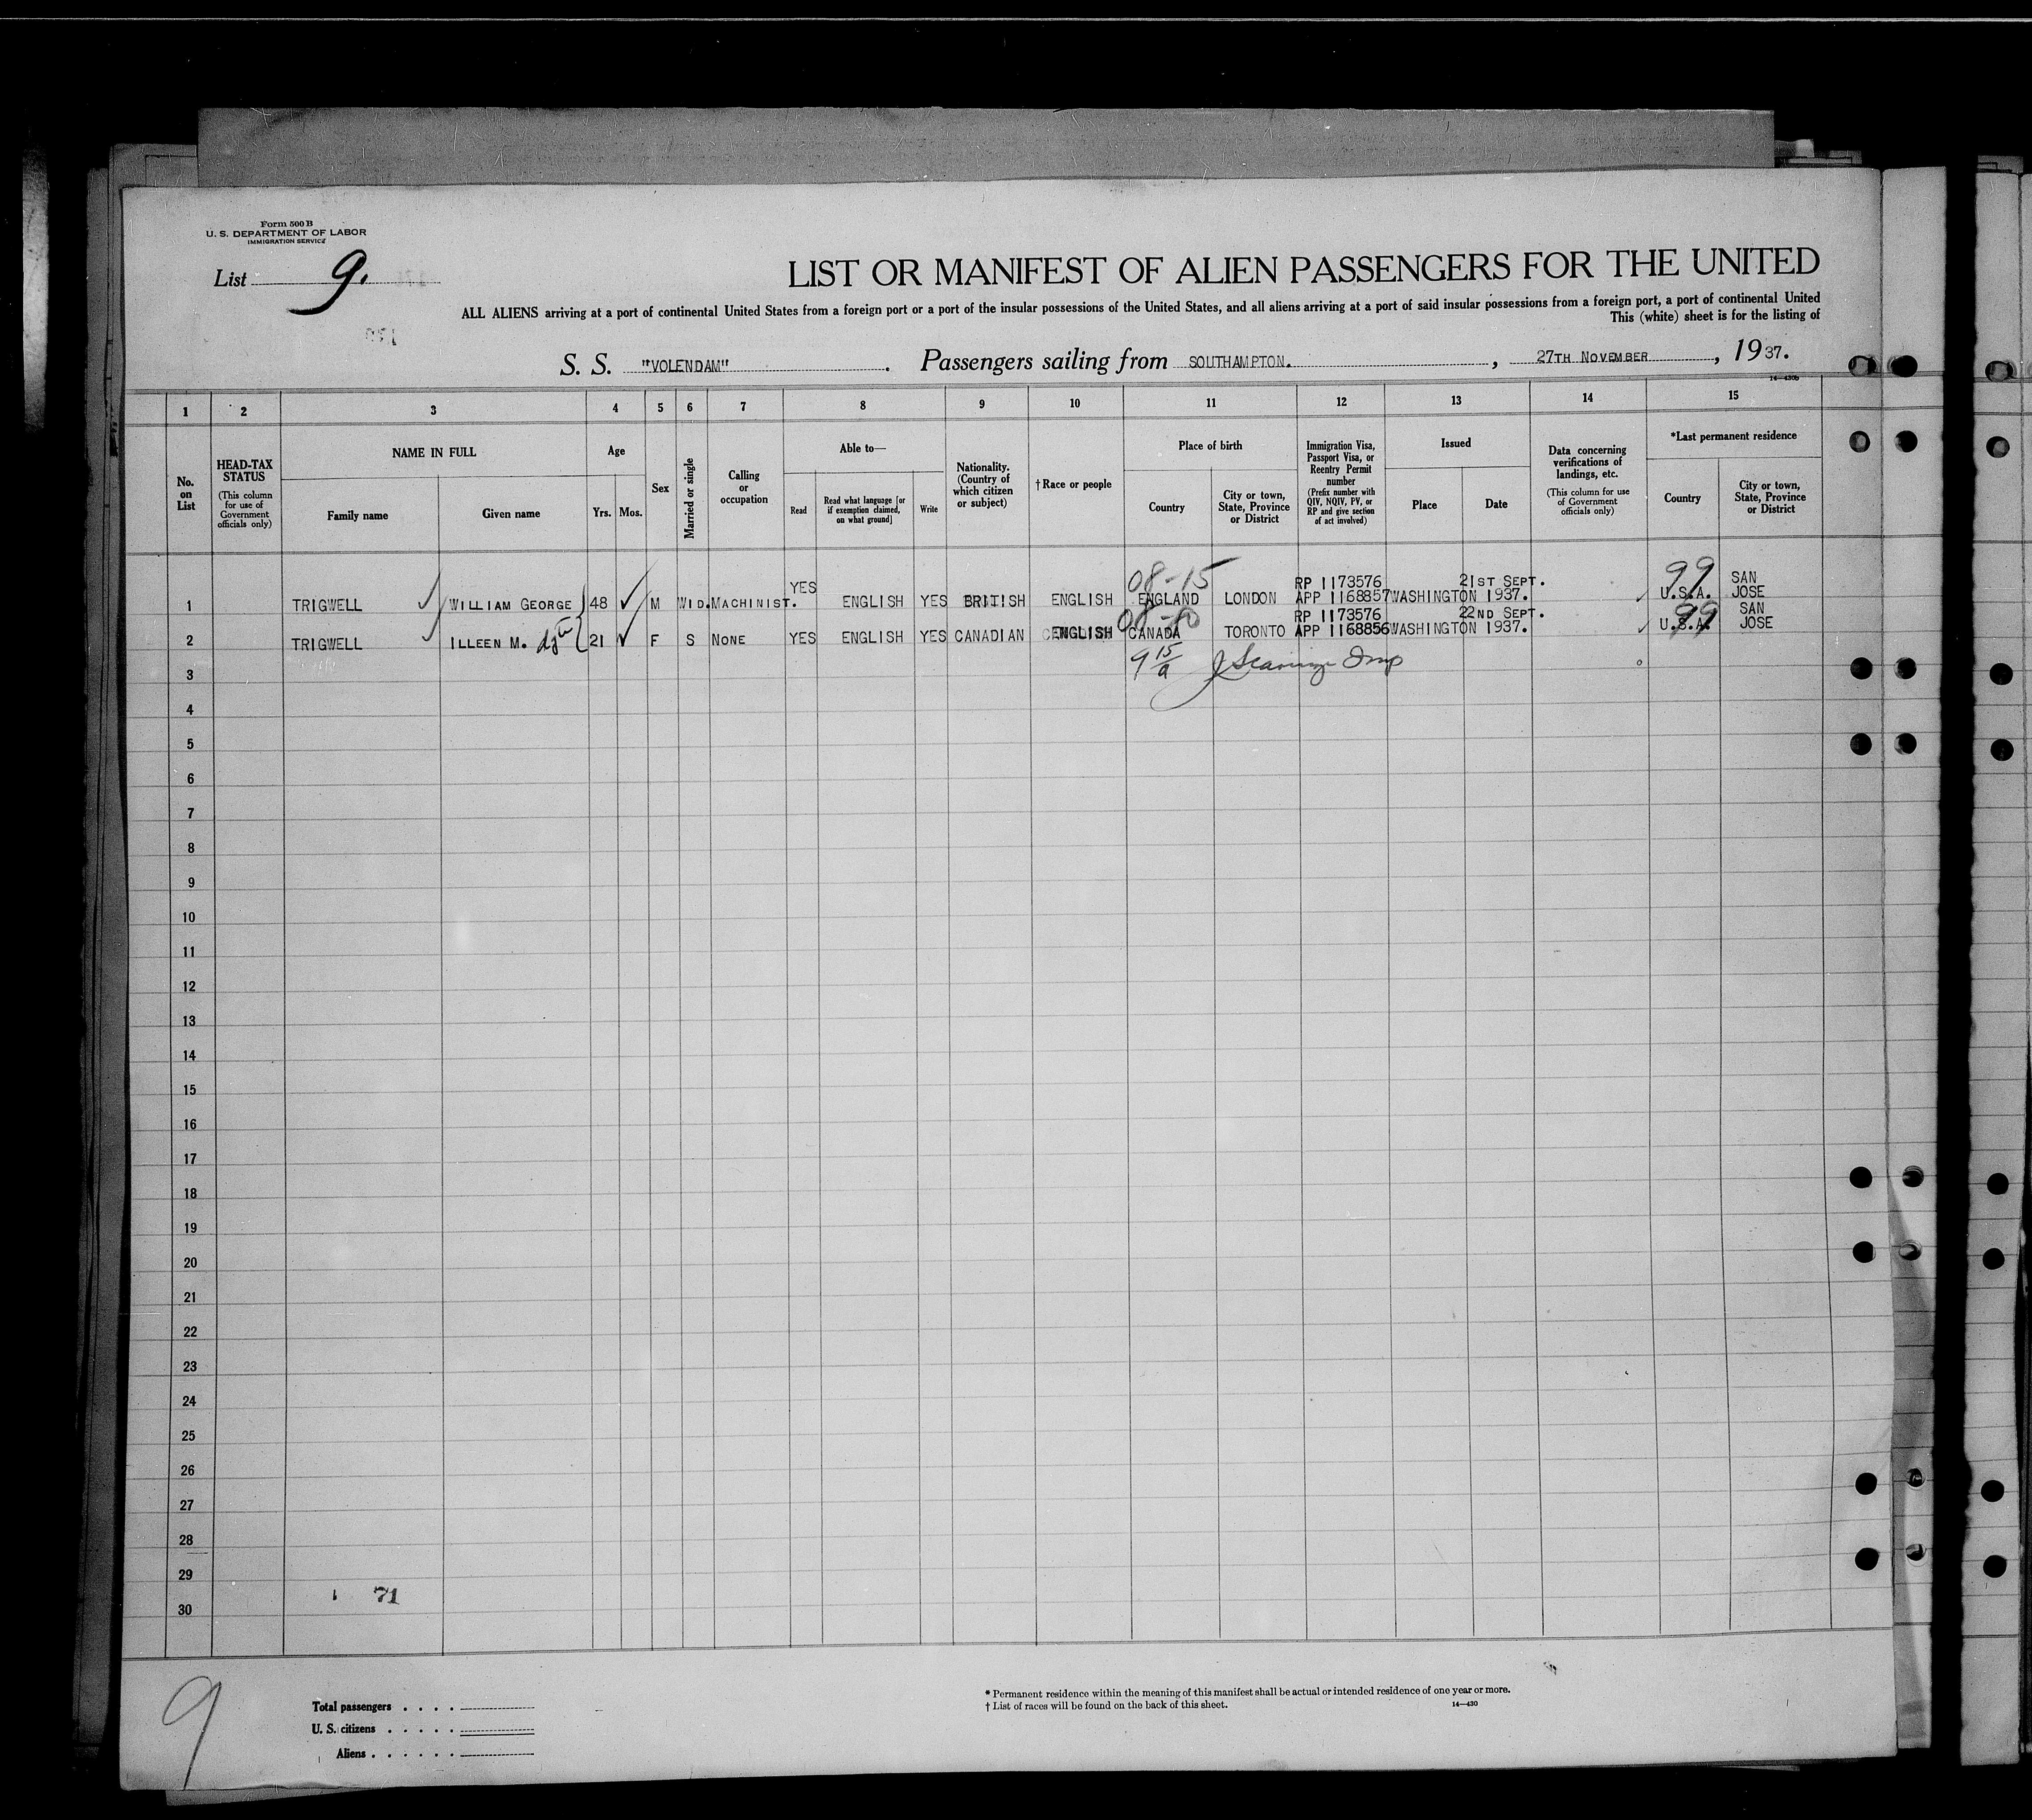 Form 500 B
U. S. DEPARTMENT OF LABOR
IMMIGRATION SERVICE
List 9.
LIST OR MANIFEST OF ALIEN PASSENGERS FOR THE UNITED
ALL ALIENS arriving at a port of continental United States from a foreign port or a port of the insular possessions of the United States, and all aliens arriving at a port of said insular possessions from a foreign port, a port of continental United
This (white) sheet is for the listing of
S. S. "VOLENDAM". Passengers sailing from SOUTHAMPTON., 27TH NOVEMBER, 1937.
14—430b
1 2 3 4 5 6 7 8 9 10 11 12 13 14 15
No. on List
HEAD-TAX STATUS
(This column for use of Government officials only)
NAME IN FULL
Family name
Given name
Age
Yrs.
Mos.
Sex
Married or single
Calling or occupation
Able to—
Read
Read what language [or if exemption claimed, on what ground]
Write
Nationality. (Country of which citizen or subject)
† Race or people
Place of birth
Country
City or town, State, Province or District
Immigration Visa, Passport Visa, or Reentry Permit number
(Prefix number with QIV, NQIV, PV, or RP and give section of act involved)
Issued
Place
Date
Data concerning verifications of landings, etc.
(This column for use of Government officials only)
*Last permanent residence
Country
City or town, State, Province or District
08-15 99
YES RP 1173576 21ST SEPT. SAN
1 TRIGWELL WILLIAM GEORGE 48 M WID. MACHINIST. ENGLISH YES BRITISH ENGLISH ENGLAND LONDON APP 1168857 WASHINGTON 1937. U.S.A. JOSE
RP 1173576 22ND SEPT. 99 SAN
2 TRIGWELL ILLEEN M. 21 F S NONE YES ENGLISH YES CANADIAN ENGLISH CANADA TORONTO APP 1168856 WASHINGTON 1937. U.S.A. JOSE
3
4
5
6
7
8
9
10
11
12
13
14
15
16
17
18
19
20
21
22
23
24
25
26
27
28
29
71
30
9
Total passengers . . . .
U. S. citizens . . . . .
Aliens . . . . . .
* Permanent residence within the meaning of this manifest shall be actual or intended residence of one year or more.
† List of races will be found on the back of this sheet. 14—430